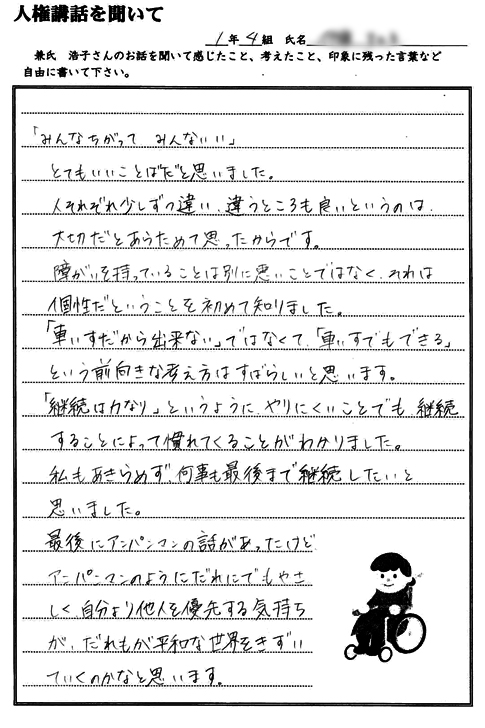 人権講話を聞いて
1年 4組 氏名
兼氏 浩子さんのお話を聞いて感じたこと、考えたこと、印象に残った言葉など
自由に書いて下さい。
「みんなちがって みんないい」
とてもいいことばだと思いました。
人それぞれ少しずつ違い、違うところも良いというのは、
大切だとあらためて思ったからです。
障がいを持っていることは別に悪いことではなく、それは
個性だということを初めて知りました。
「車いすだから出来ない」ではなくて、「車いすでもできる」
という前向きな考え方はすばらしいと思います。
「継続は力なり」というように、やりにくいことでも 継続
することによって慣れてくることがわかりました。
私もあきらめず、何事も最後まで継続したいと
思いました。
最後にアンパンマンの話があったけど
アンパンマンのようにだれにでもやさ
しく、自分より他人を優先する気持ち
が、だれもが平和な世界をきずい
ていくのかなと思います。